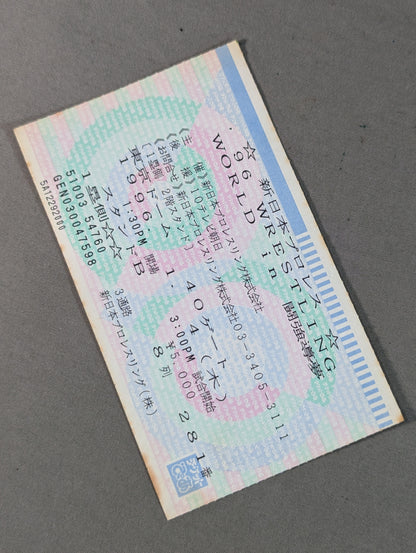 ☆ 新日本プロレス ☆
'96 WRESTLING
WORLD in 闘強導夢
《主 催》新日本プロレスリング株式会社
《後 援》10テレビ朝日
《お問合せ》新日本プロレスリング株式会社03-3405-3111
《1塁側 2階スタンド 40ゲート》
東京ドーム
1996. 1. 4 (木)
1:30PM 開場 3:00PM 試合開始
スタンドB ¥5,000
1塁側☆☆ 3通路 8列 281番
51003 54760 新日本プロレスリング(株)
GEN030047598
5A12292000